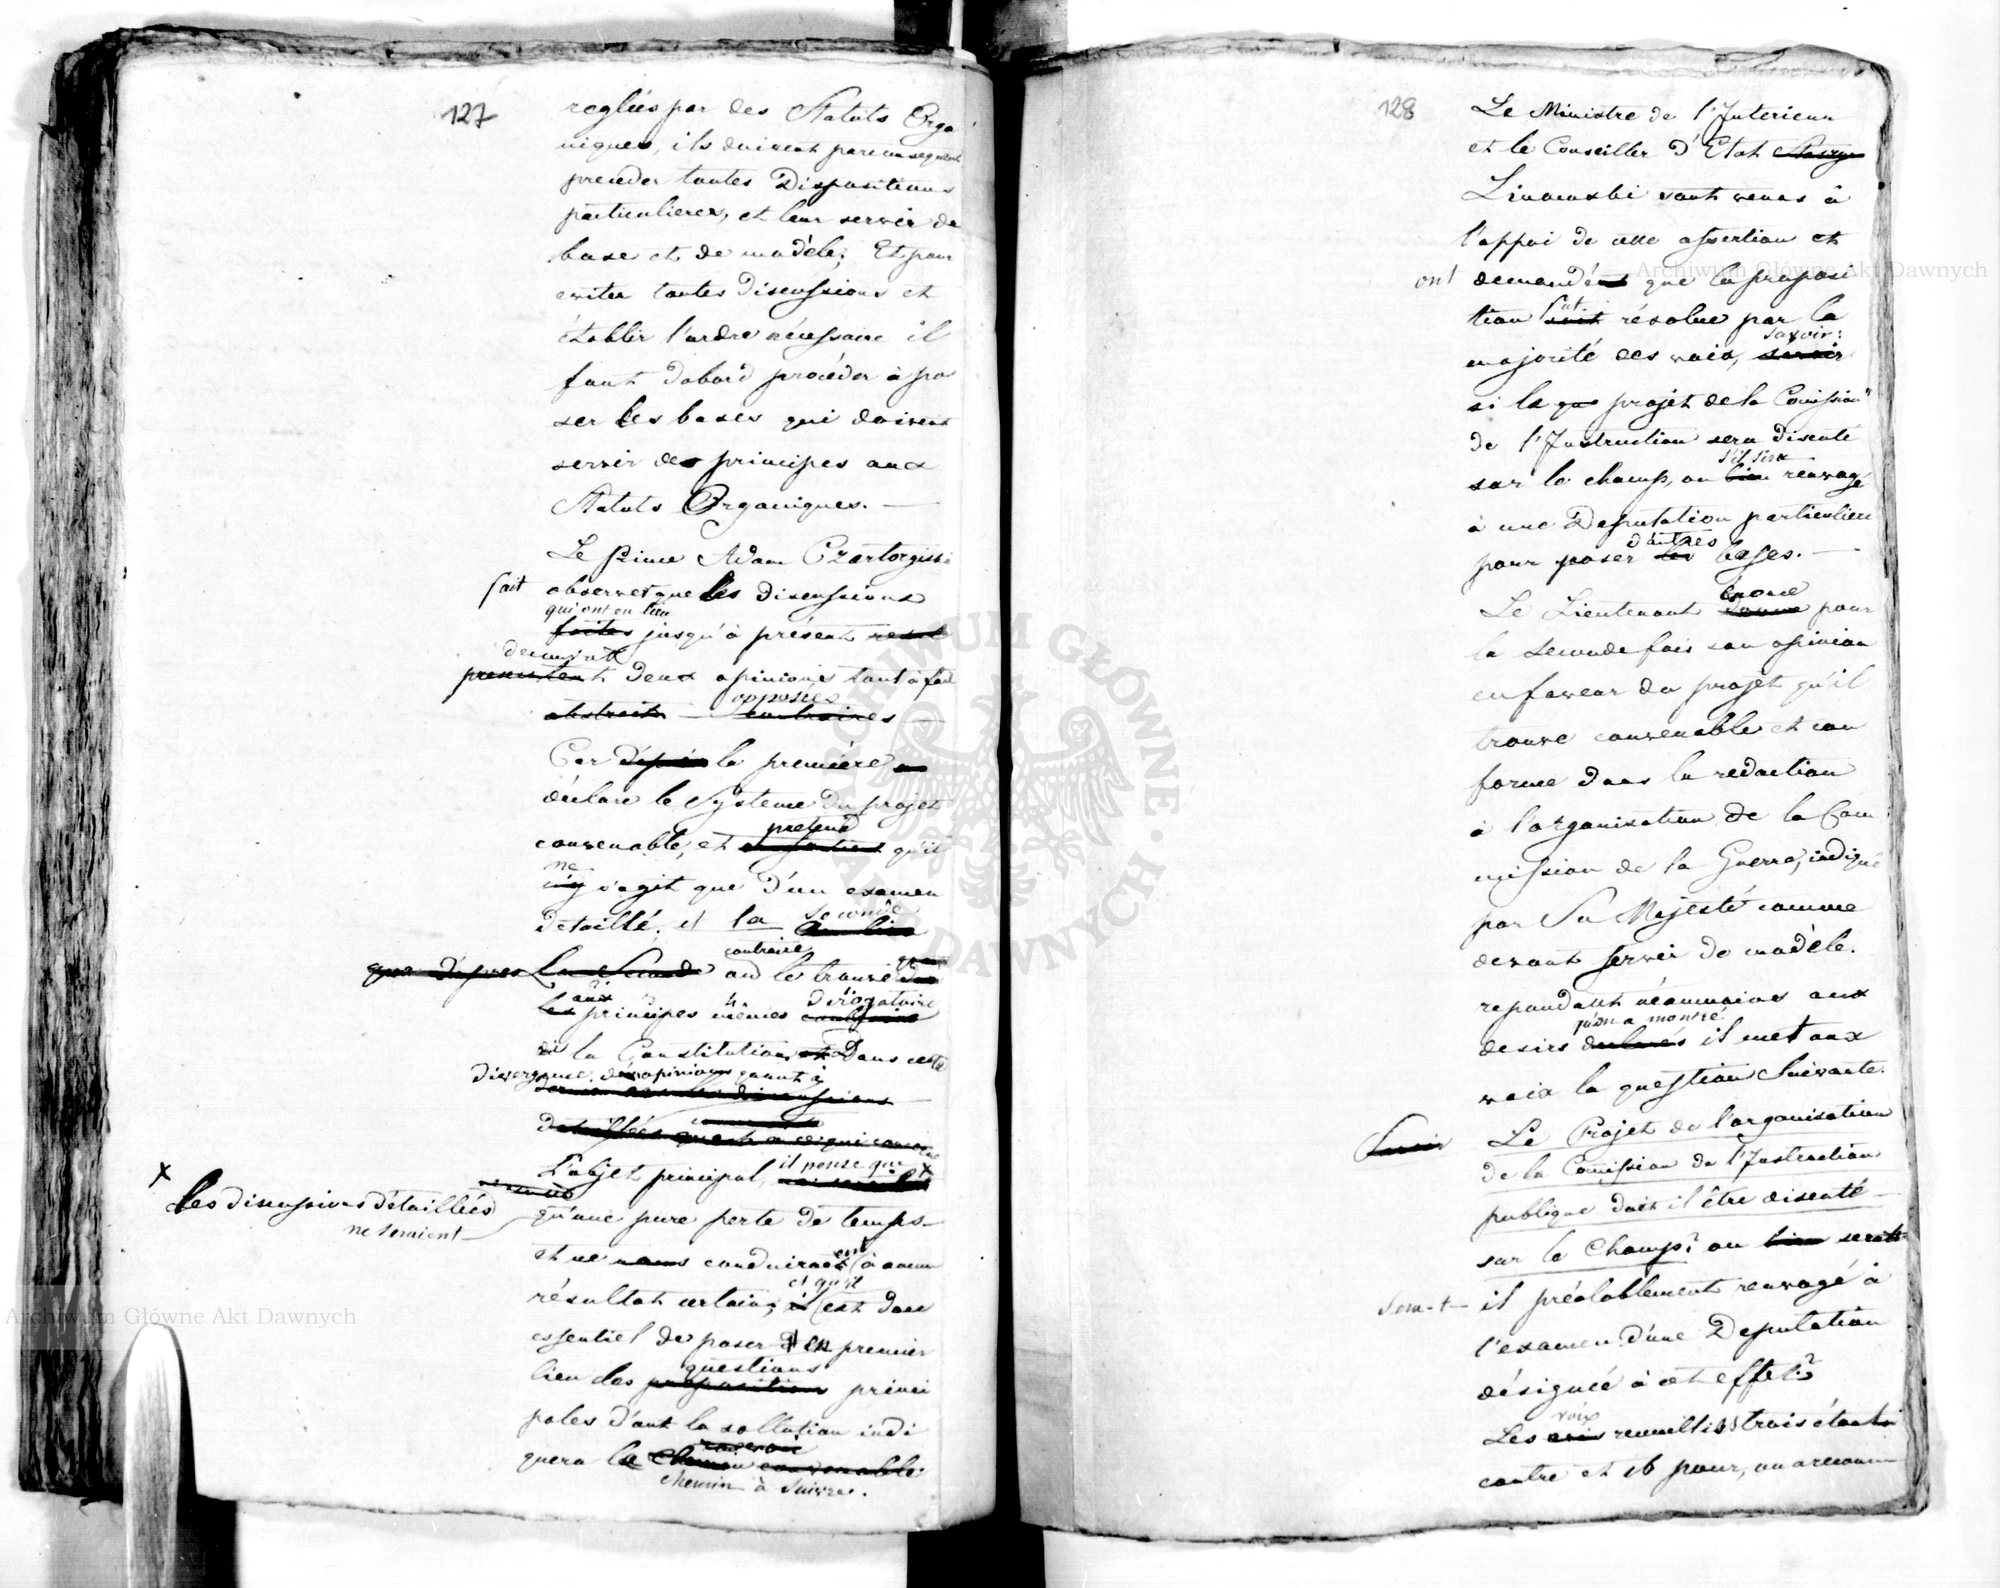 127
reglées par des Statuts Orga
niques, ils doivent parconsequent
preceder toutes Dispositions
particulieres, et leur servir de
base et de modèle; Et pour
eviter toutes Discussions et
établir l'ordre nécessaire il
faut d'abord procéder à po
ser les bases qui doivent
servir de principes aux
Statuts Organiques. —
Le Prince Adam Czartoryski
fait observer que les discussions
qui ont eu lieu
faites jusqu'à présent
presentent deux opinions tout à fait
opposées
abstraits — contraires —
Car d'après la première
déclare le Systeme du projet
pretend
convenable, et qu'il
ne
n'y s'agit que d'un examen
seconde
detaillé, et la au lieu
contraire
que d'apres La Seconde on le trouve
aux dérogatoire
les principes mêmes contraire
de la Constitution Dans cette
Divergence des opinions quant à
detaillées quant à ce qui concerne
L'objet principal, il pense que x
x
les discussions détaillées
ne seroient
qu'une pure perte de temps —
et ne nous conduiroient à aucun
et qu'il
résultat certain, il est donc
essentiel de poser en premier
questions
lieu des propositions princi
pales dont la sollution indi
quera le chemin convenable
chemin à suivre.
128
Le Ministre de l'Interieur
et le Conseiller d'Etat
Linowski sont venus à
l'appui de cette assertion et
ont demandé que la proposi
fut
tion soit résolue par la
savoir:
majorité des voix, savoir
si le projet de la Comission
de l'Instruction sera discuté
s'il sera
sur le champ, ou bien renvoyé
à une Deputation particuliere
d'autres
pour poser les bases. —
énonce
Le Lieutenant donne pour
la seconde fois son opinion
en faveur du projet qu'il
trouve convenable et con
forme dans la redaction
à l'organisation de la Com
mission de la Guerre, indiqué
par Sa Majesté comme
devant servir de modèle.
repondant néanmoins aux
qu'on a montré
desirs declarés il met aux
voix la question Suivante.
Savoir Le Projet de l'organisation
de la Comission de l'Instruction
publique doit il être discuté
sur le Champ? ou bien serait
sera-t- il préalablement renvoyé à
l'examen d'une Deputation
désignée à cet effet?
voix
Les avis recueillis trois étant
contre et 16 pour, on a reconnu
Archiwum Główne Akt Dawnych
Archiwum Główne Akt Dawnych
ARCHIWUM GŁÓWNE AKT DAWNYCH